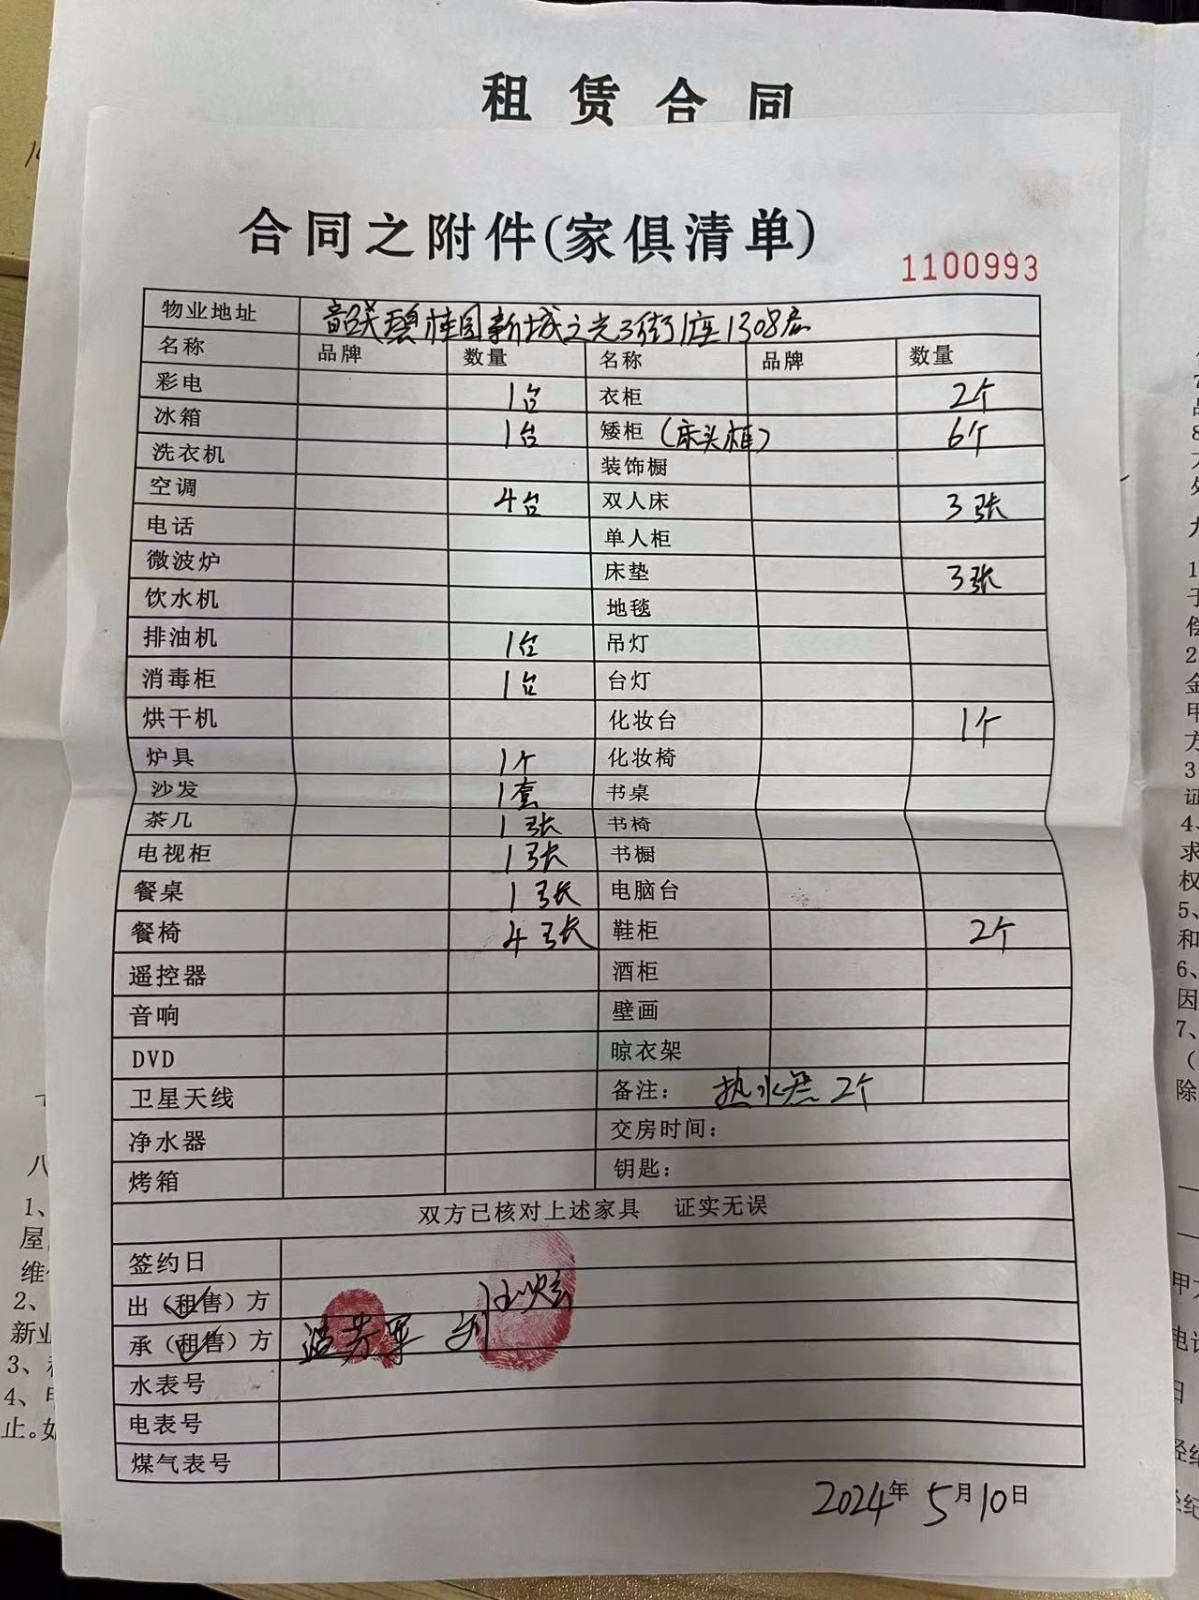 租赁合同
合同之附件(家俱清单)
1100993
物业地址 韶关碧桂园新城之光3街1座1308房
名称 品牌 数量 名称 品牌 数量
彩电 1台 衣柜 2个
冰箱 1台 矮柜 (床头柜) 6个
洗衣机 装饰橱
空调 4台 双人床 3张
电话 单人柜
微波炉 床垫 3张
饮水机 地毯
排油机 1台 吊灯
消毒柜 1台 台灯
烘干机 化妆台 1个
炉具 1个 化妆椅
沙发 1套 书桌
茶几 1张 书椅
电视柜 1张 书橱
餐桌 1张 电脑台
餐椅 4张 鞋柜 2个
遥控器 酒柜
音响 壁画
DVD 晾衣架
卫星天线 备注： 热水器 2个
净水器 交房时间：
烤箱 钥匙：
双方已核对上述家具 证实无误
签约日
出（租售）方
承（租售）方
水表号
电表号
煤气表号
2024年5月10日